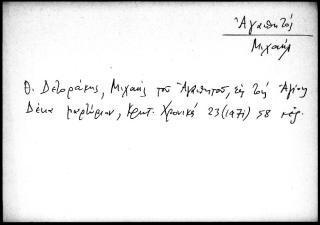 Ἀγαπητός
Μιχαήλ
Θ. Δετοράκης, Μιχαὴλ τοῦ Ἀγαπητοῦ, εἰς τοὺς Ἁγίους
Δέκα μάρτυρας, Κρητ. Χρονικά 23 (1971) 58 κἑξ.